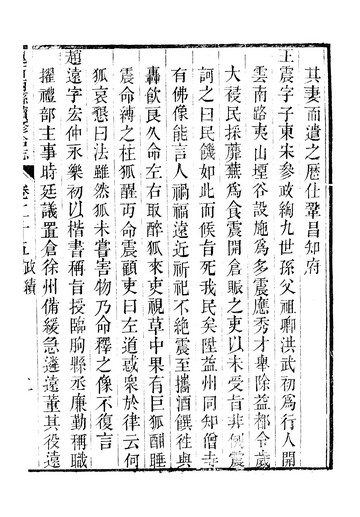 其妻而遣之歷仕鞏昌知府
王震字子東宋參政綯九世孫父祖卿洪武初爲行人開
雲南路夷山堙谷設施爲多震應秀才舉除益都令歲
大祲民採蘼蕪爲食震開倉賑之吏以未受旨非例震
訶之曰民饑如此而候旨死我民矣陞益州同知僧寺
有佛像能言人禍福遠近祈祀不絶震至攜酒饌徃與
轟飲良久命左右取醉狐來吏視草中果有巨狐酣睡
震命縛之柱狐醒丐命震顧吏曰左道惑衆於律云何
狐哀懇曰法雖然狐未嘗害物乃命釋之像不復言
趙遠字宏仲永樂初以楷書稱旨授臨朐縣丞廉勤稱職
擢禮部主事時廷議置倉徐州備緩急遴遠董其役遠
卷二十五 政績